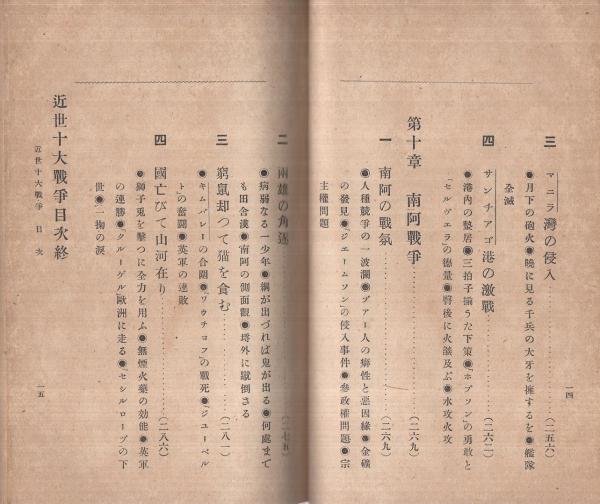 三　マニラ灣の侵入……………(二五六)
●月下の砲火●曉に見る千兵の大牙を擁するを●艦隊
全滅
四　サンチアゴ港の激戰……………(二六二)
●港内の蟄居●三拍子揃うた下策●「ホブソン」の勇敢と
「セルヴエラ」の德量●臀後に火談及ぶ●水攻火攻
第十章　南阿戰爭……………(二六九)
一　南阿の戰氛……………(二六九)
●人種競爭の一波瀾●ヴアー人の癖性と惡因緣●金礦
の發見●ジエームソンの侵入事件●參政權問題●宗
主權問題
一四
二　兩雄の角逐……………(二七五)
●病弱なる一少年●鋼が出づれば鬼が出る●何處まで
も田舍漢●南阿の側面觀●埓外に蹴倒さる
三　窮鼠却つて猫を食む……………(二八一)
●キムバレーの合圍●「ワウチヨフ」の戰死●「ジユーベル
ト」の奮鬪●英軍の連敗
四　國亡びて山河在り……………(二八六)
●獅子兎を擊つに全力を用ふ●無煙火藥の効能●英軍
の連勝●クルーゲル歐洲に走る●「セシルローヅ」の下
世●一掬の淚
近世十大戰爭目次終
近世十大戰爭　目次
一五